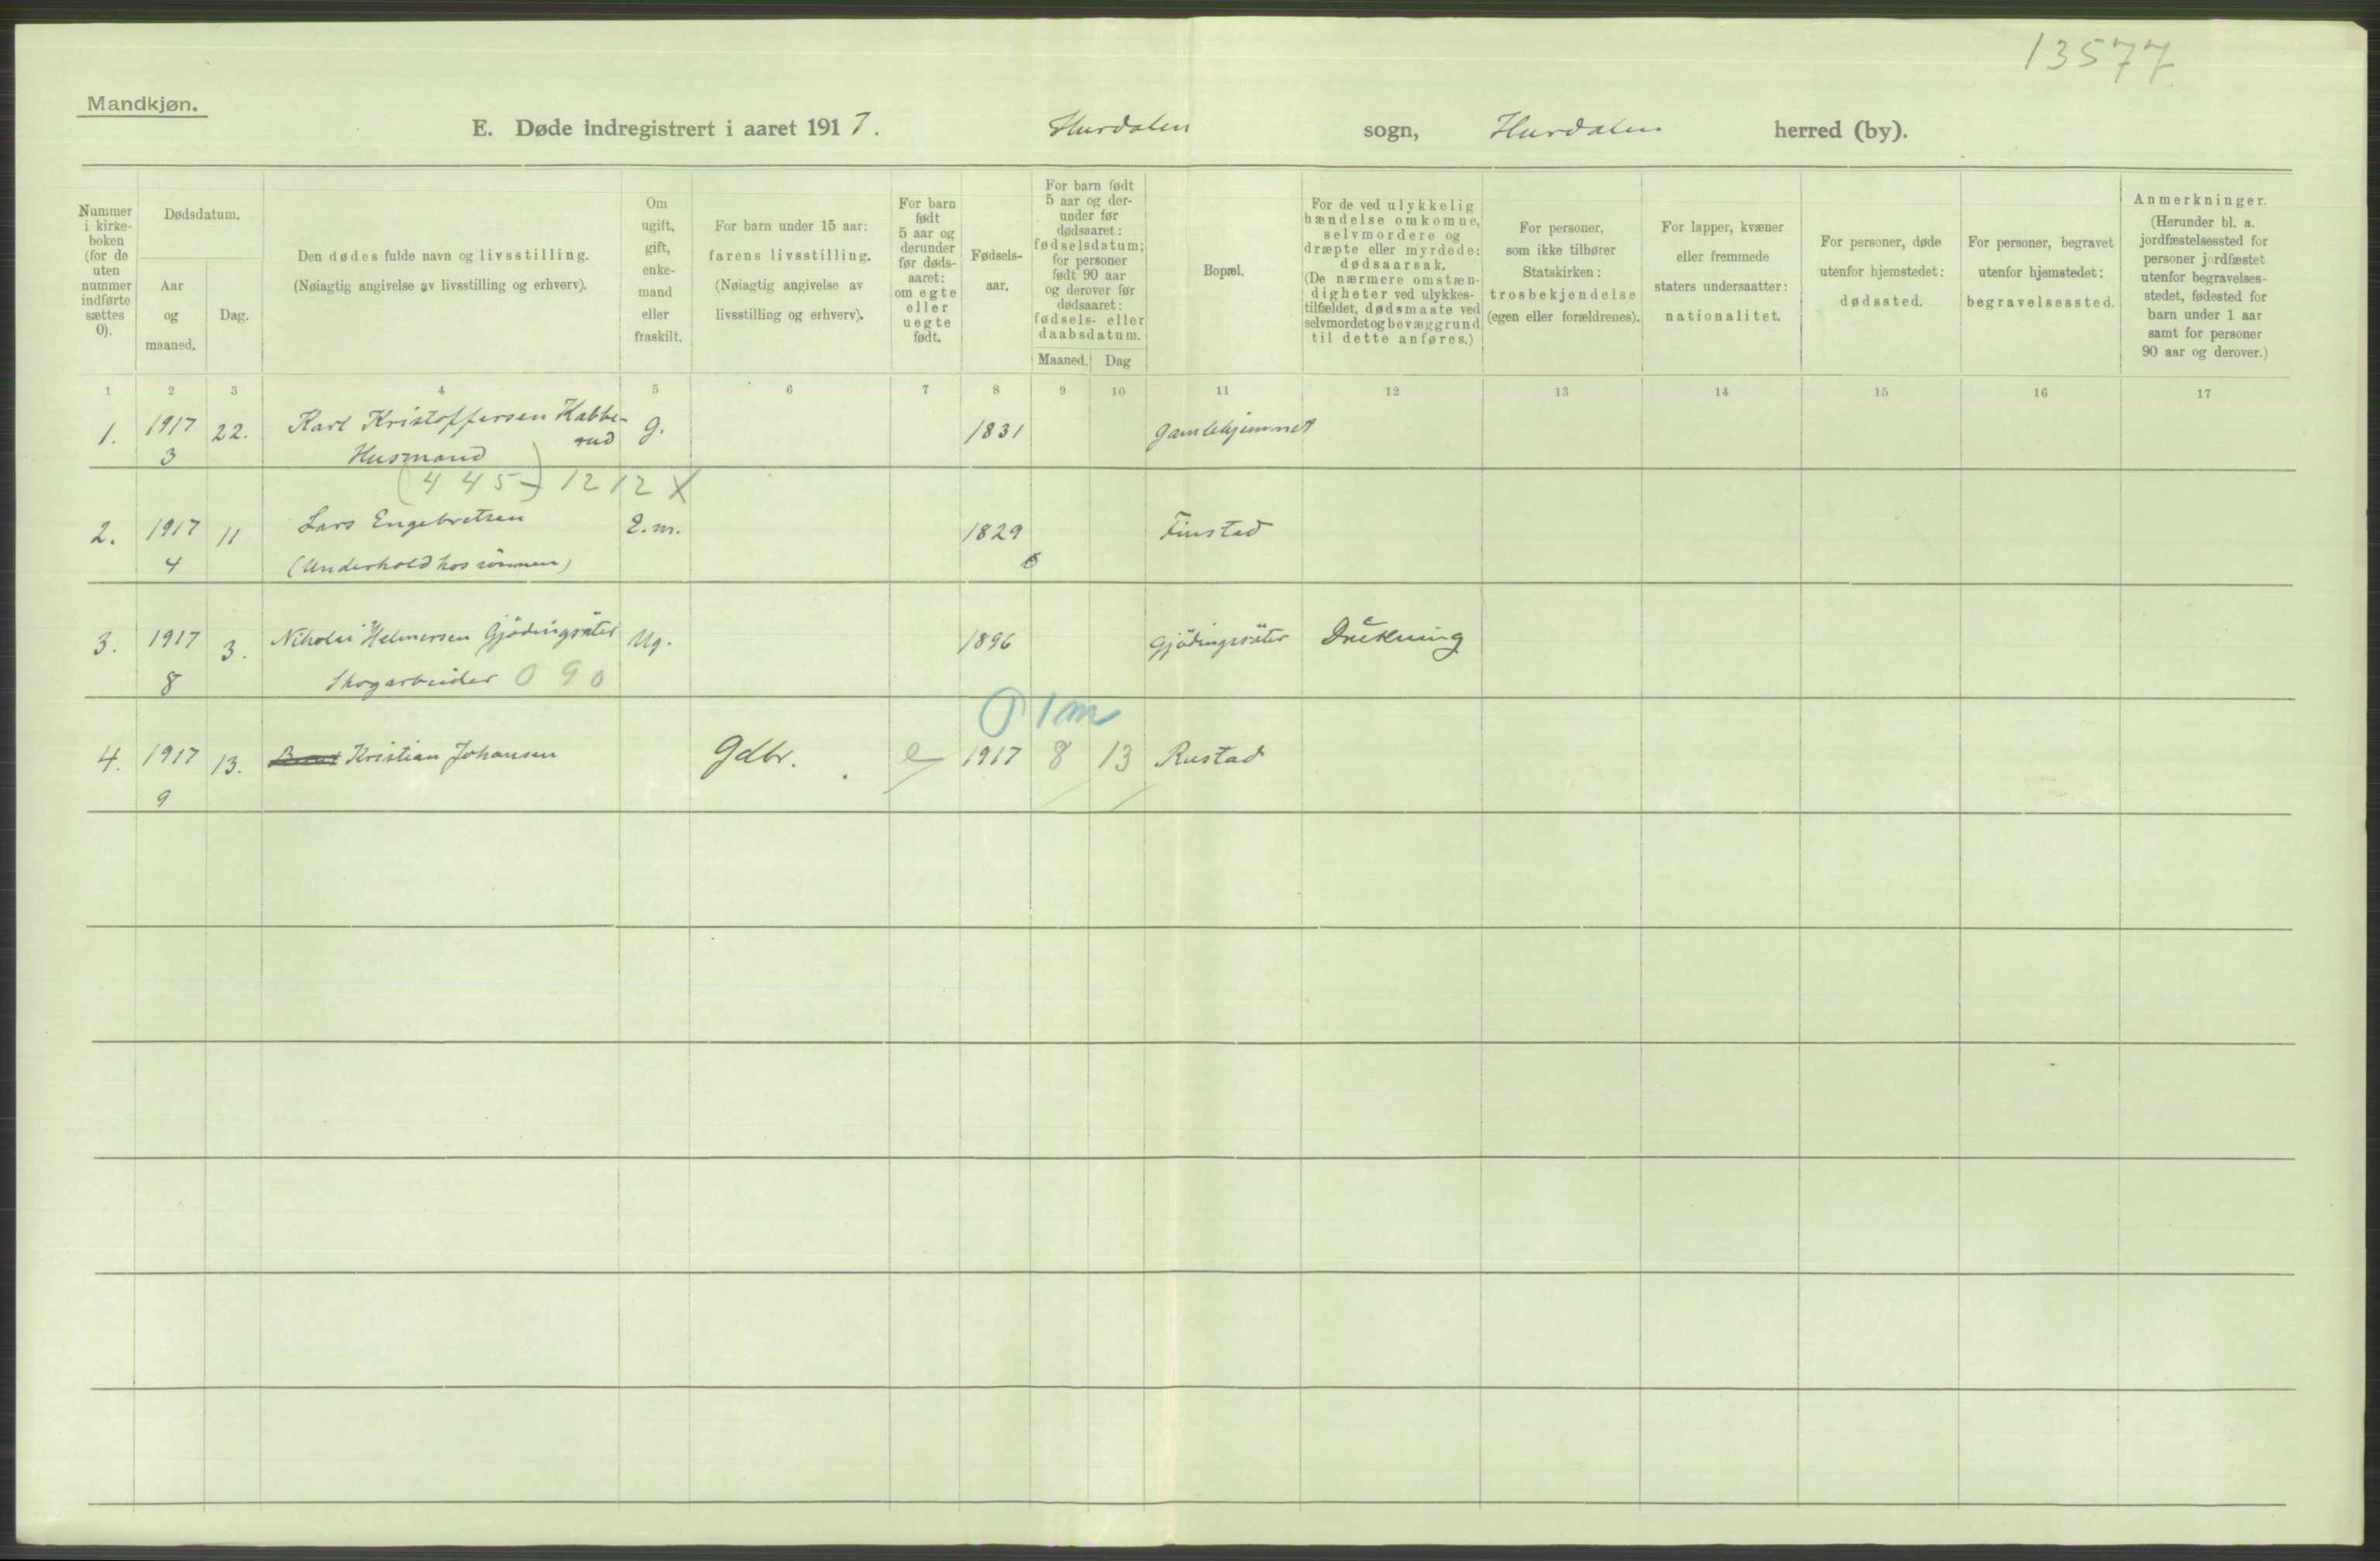 13577
Mandkjøn.
E. Døde indregistrert i aaret 1917. Hurdalen sogn, Hurdalen herred (by).
Nummer i kirke-boken (for de uten nummer indførte sættes 0).
Dødsdatum.
Aar og maaned.
Dag.
Den dødes fulde navn og livsstilling.
(Nøiagtig angivelse av livsstilling og erhverv).
Om ugift, gift, enke-mand eller fraskilt.
For barn under 15 aar:
farens livsstilling.
(Nøiagtig angivelse av
livsstilling og erhverv).
For barn født 5 aar og derunder før døds-aaret: om egte eller uegte født.
Fødsels-aar.
For barn født 5 aar og der-under før dødsaaret: fødselsdatum; for personer født 90 aar og derover før dødsaaret: fødsels- eller daabsdatum.
Maaned. Dag
Bopæl.
For de ved ulykkelig hændelse omkomne, selvmordere og dræpte eller myrdede: dødsaarsak.
(De nærmere omstæn-digheter ved ulykkes-tilfældet, dødsmaate ved selvmordet og bevæggrund til dette anføres.)
For personer, som ikke tilhører Statskirken: trosbekjendelse (egen eller forældrenes).
For lapper, kvæner eller fremmede staters undersaatter: nationalitet.
For personer, døde utenfor hjemstedet: dødssted.
For personer, begravet utenfor hjemstedet: begravelsessted.
Anmerkninger.
(Herunder bl. a. jordfæstelsessted for personer jordfæstet utenfor begravelses-stedet, fødested for barn under 1 aar samt for personer 90 aar og derover.)
1 2 3 4 5 6 7 8 9 10 11 12 13 14 15 16 17
1. 1917 22. Karl Kristoffersen Kabbe-rud g. 1831 Gamlehjemmet
3 Husmand
(445-) 1212 X
2. 1917 11 Lars Engebretsen E.m. 1829 Finstad
4 (Underhold hos sønnen) 6
3. 1917 3. Nikolai Helmersen Gjødingsäter Ug. 1896 Gjødingsäter Drukning
8 Skogarbeider 090
1 m
4. 1917 13. Kristian Johansen Gdbr. e 1917 8 13 Rustad
9